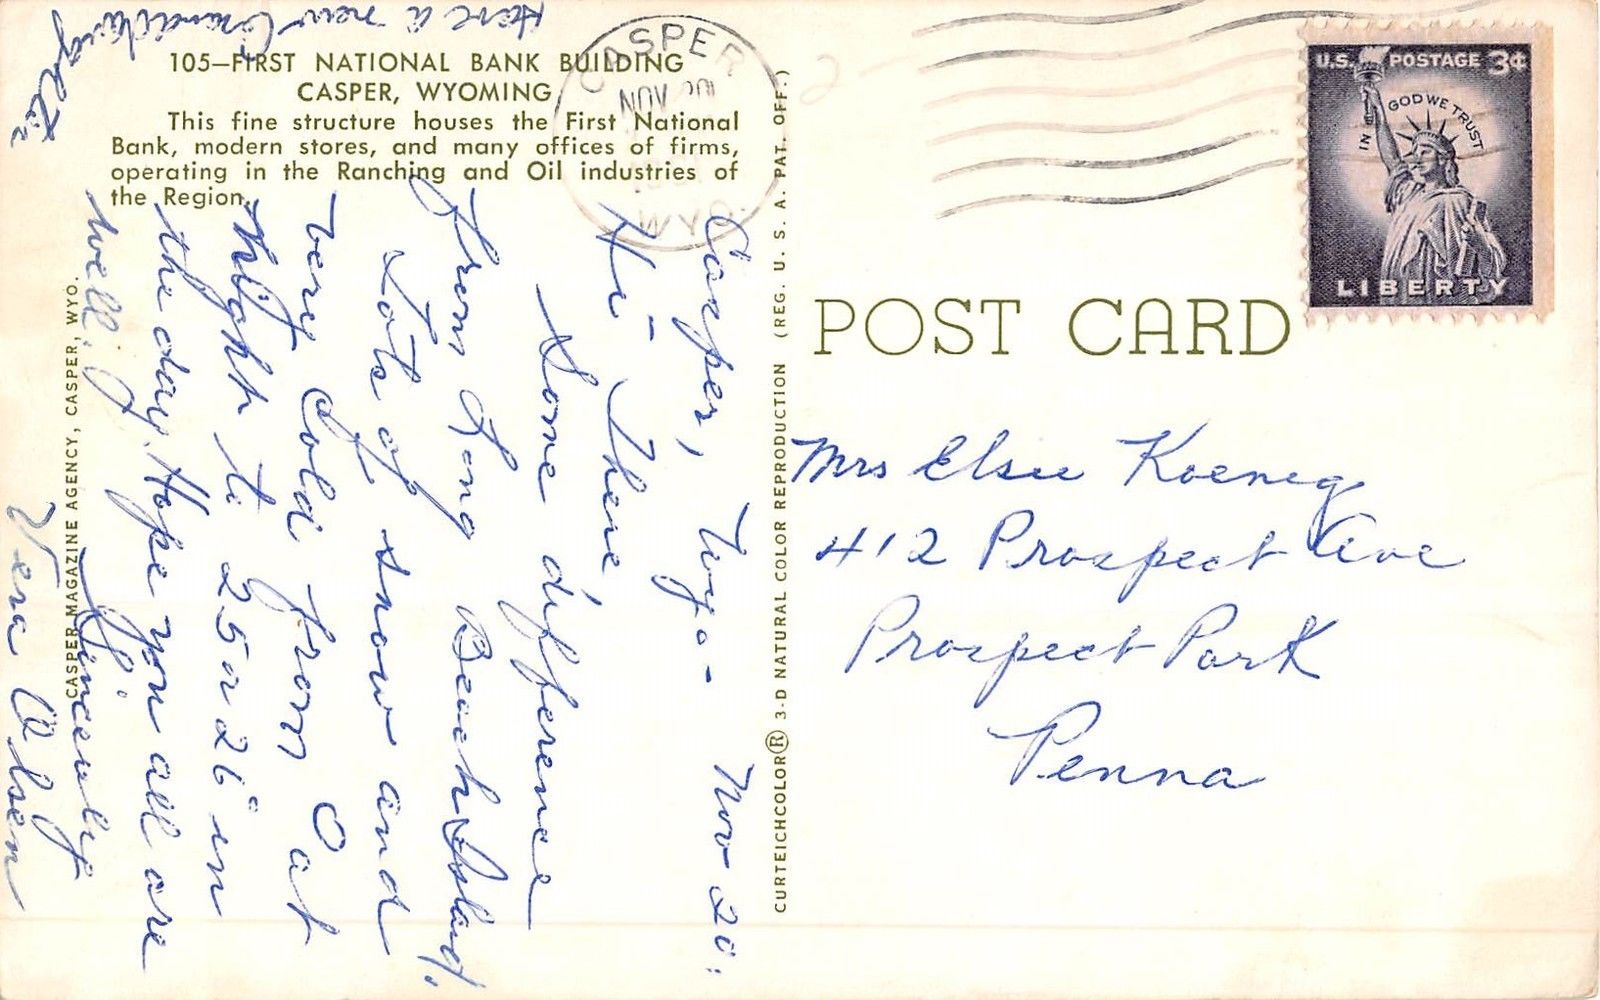 105—FIRST NATIONAL BANK BUILDING
CASPER, WYOMING
This fine structure houses the First National
Bank, modern stores, and many offices of firms,
operating in the Ranching and Oil industries of
the Region.
CASPER MAGAZINE AGENCY, CASPER, WYO.
CURTEICHCOLOR® 3-D NATURAL COLOR REPRODUCTION (REG. U. S. A. PAT. OFF.)
POST CARD
CASPER
NOV 20
WYO.
U.S. POSTAGE 3¢
IN GOD WE TRUST
LIBERTY
Casper, Wyo- Nov 20.
Hi- There
Some difference
from Long Beach Island.
Lots of snow and
very cold from 0 at
night to 25 or 26° in
the day. Hope you all are
well.
Sincerely
Vera Olsen
Have a new Granddaughter
Mrs Elsie Koenig
412 Prospect Ave
Prospect Park
Penna